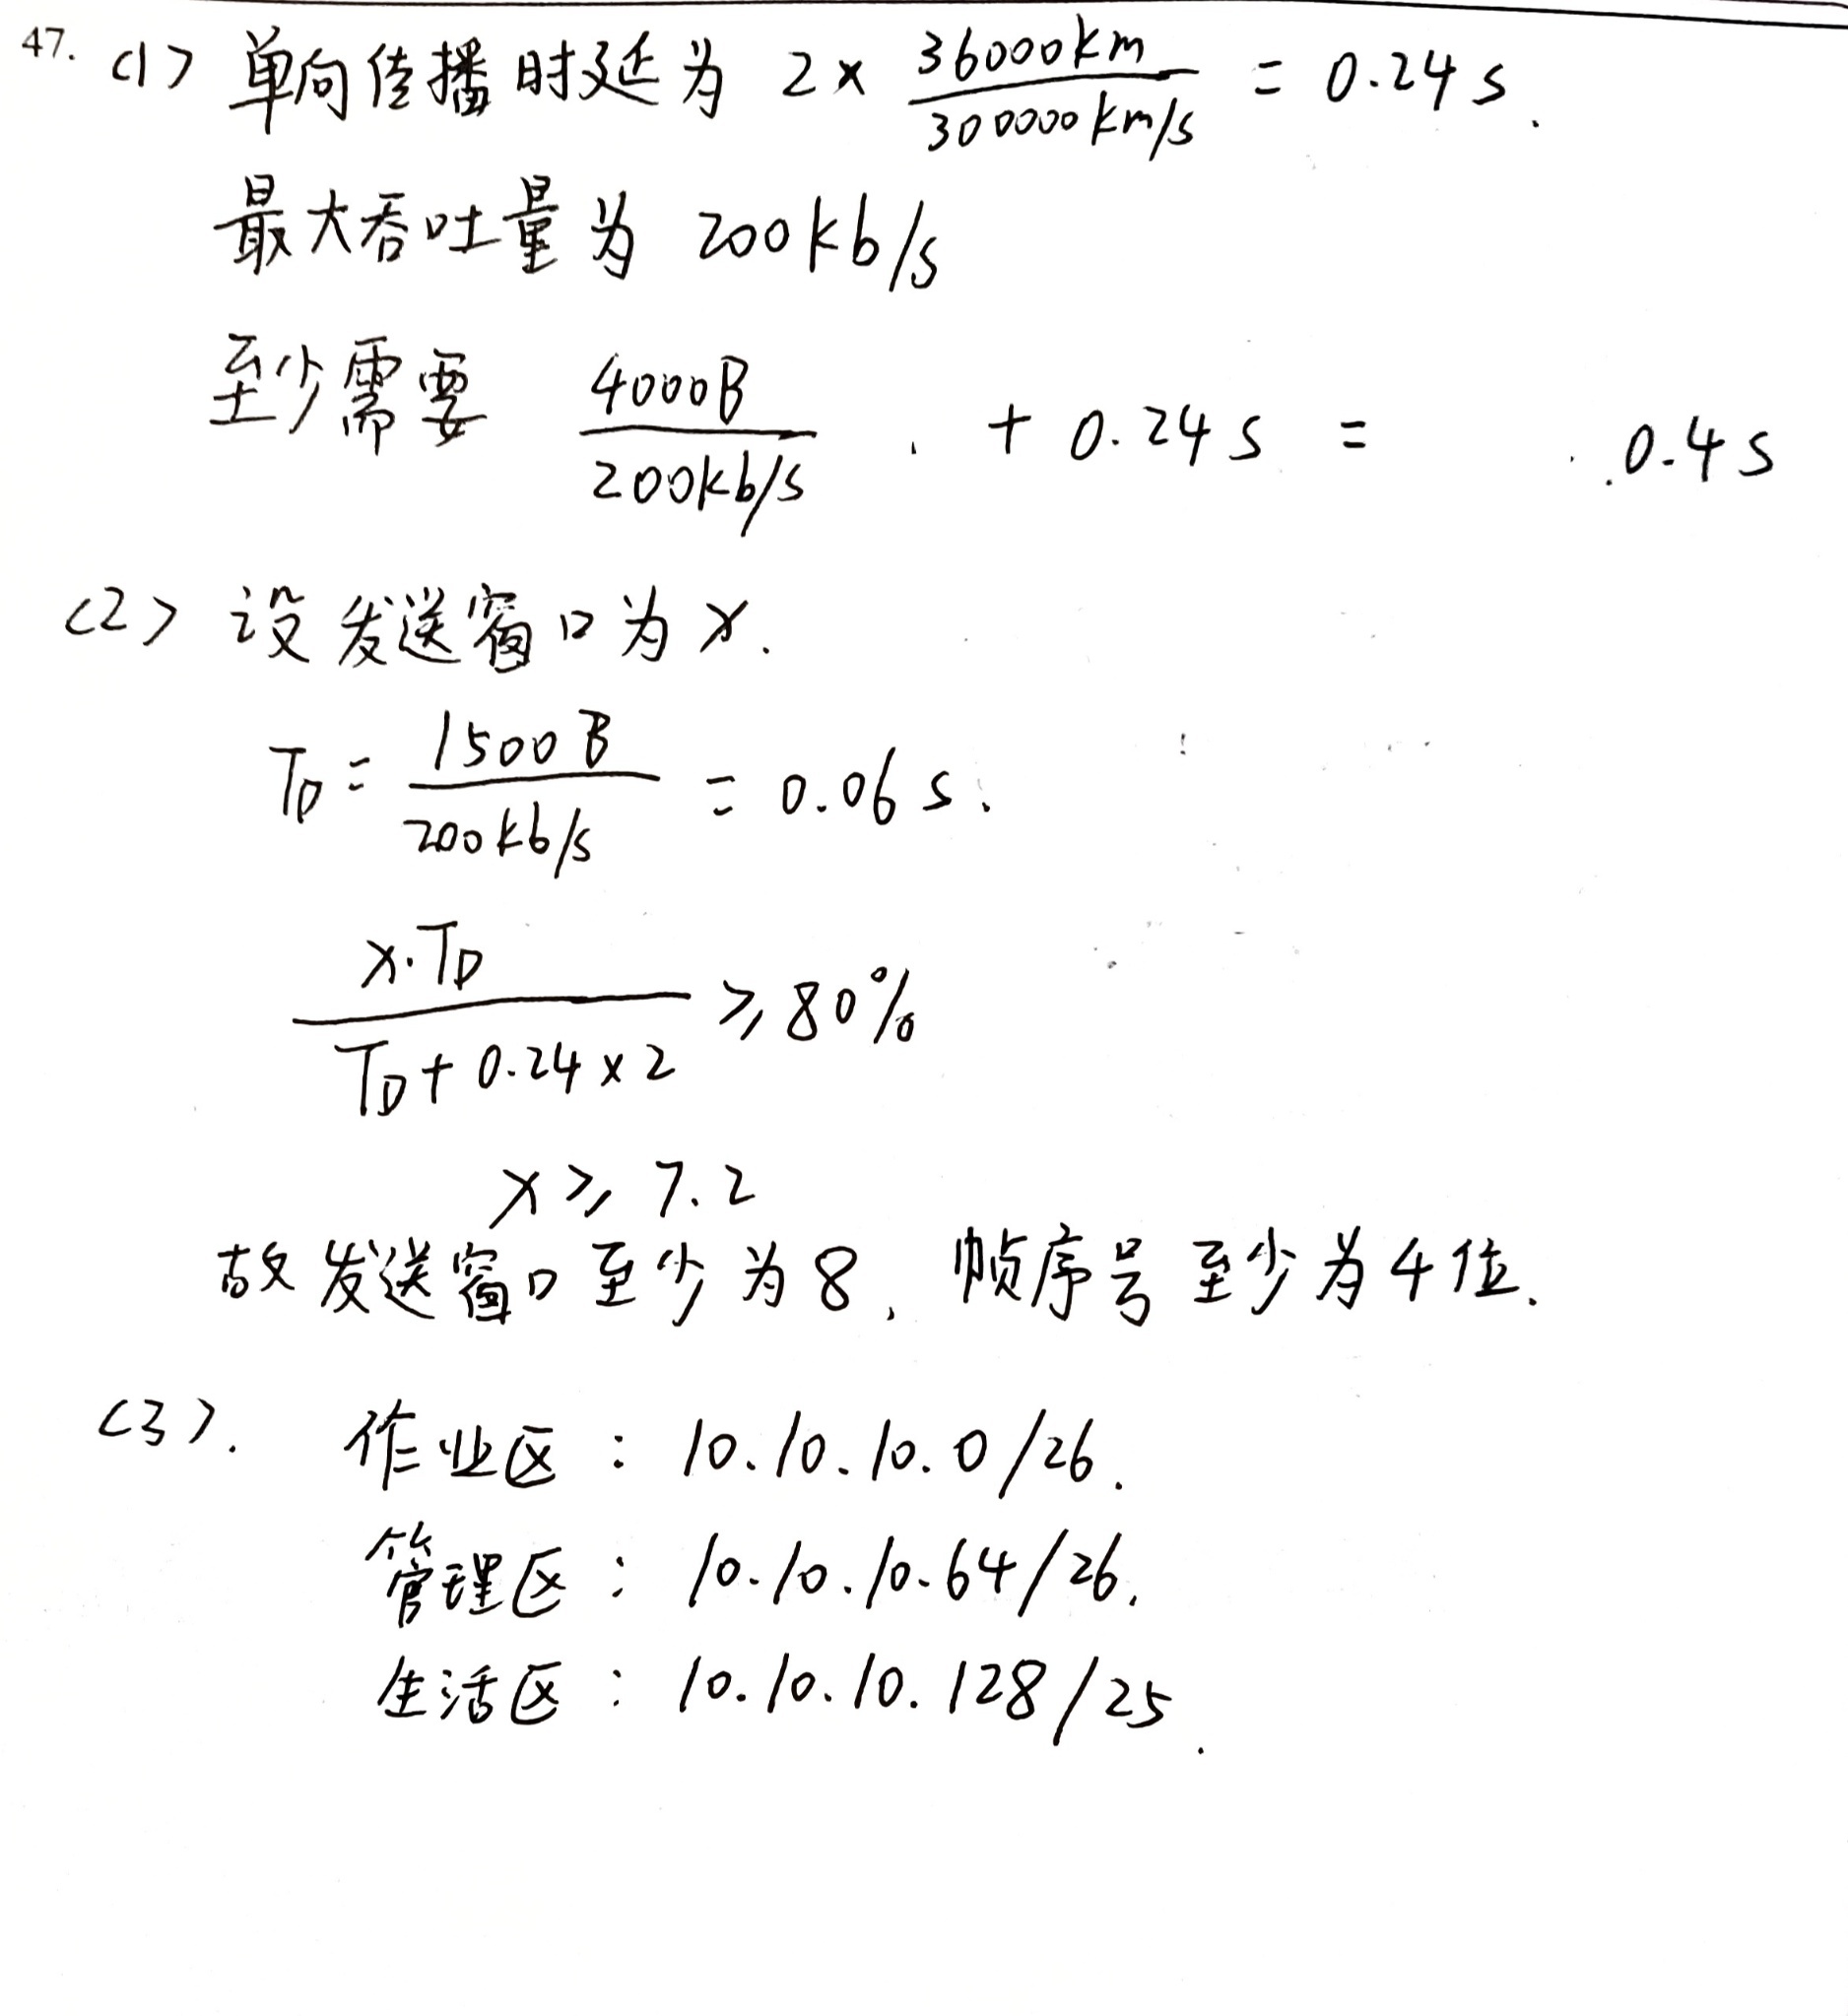 47. (1) 单向传播时延为 2 × 36000km / 300000km/s = 0.24s.
最大吞吐量为 200kb/s
至少需要 4000B / 200kb/s + 0.24s = 0.4s
(2) 设发送窗口为 x.
T_D = 1500B / 200kb/s = 0.06s.
x·T_D / T_D + 0.24×2 ≥ 80%
x ≥ 7.2
故发送窗口至少为8, 帧序号至少为4位.
(3). 作业区: 10.10.10.0/26.
管理区: 10.10.10.64/26.
生活区: 10.10.10.128/25.